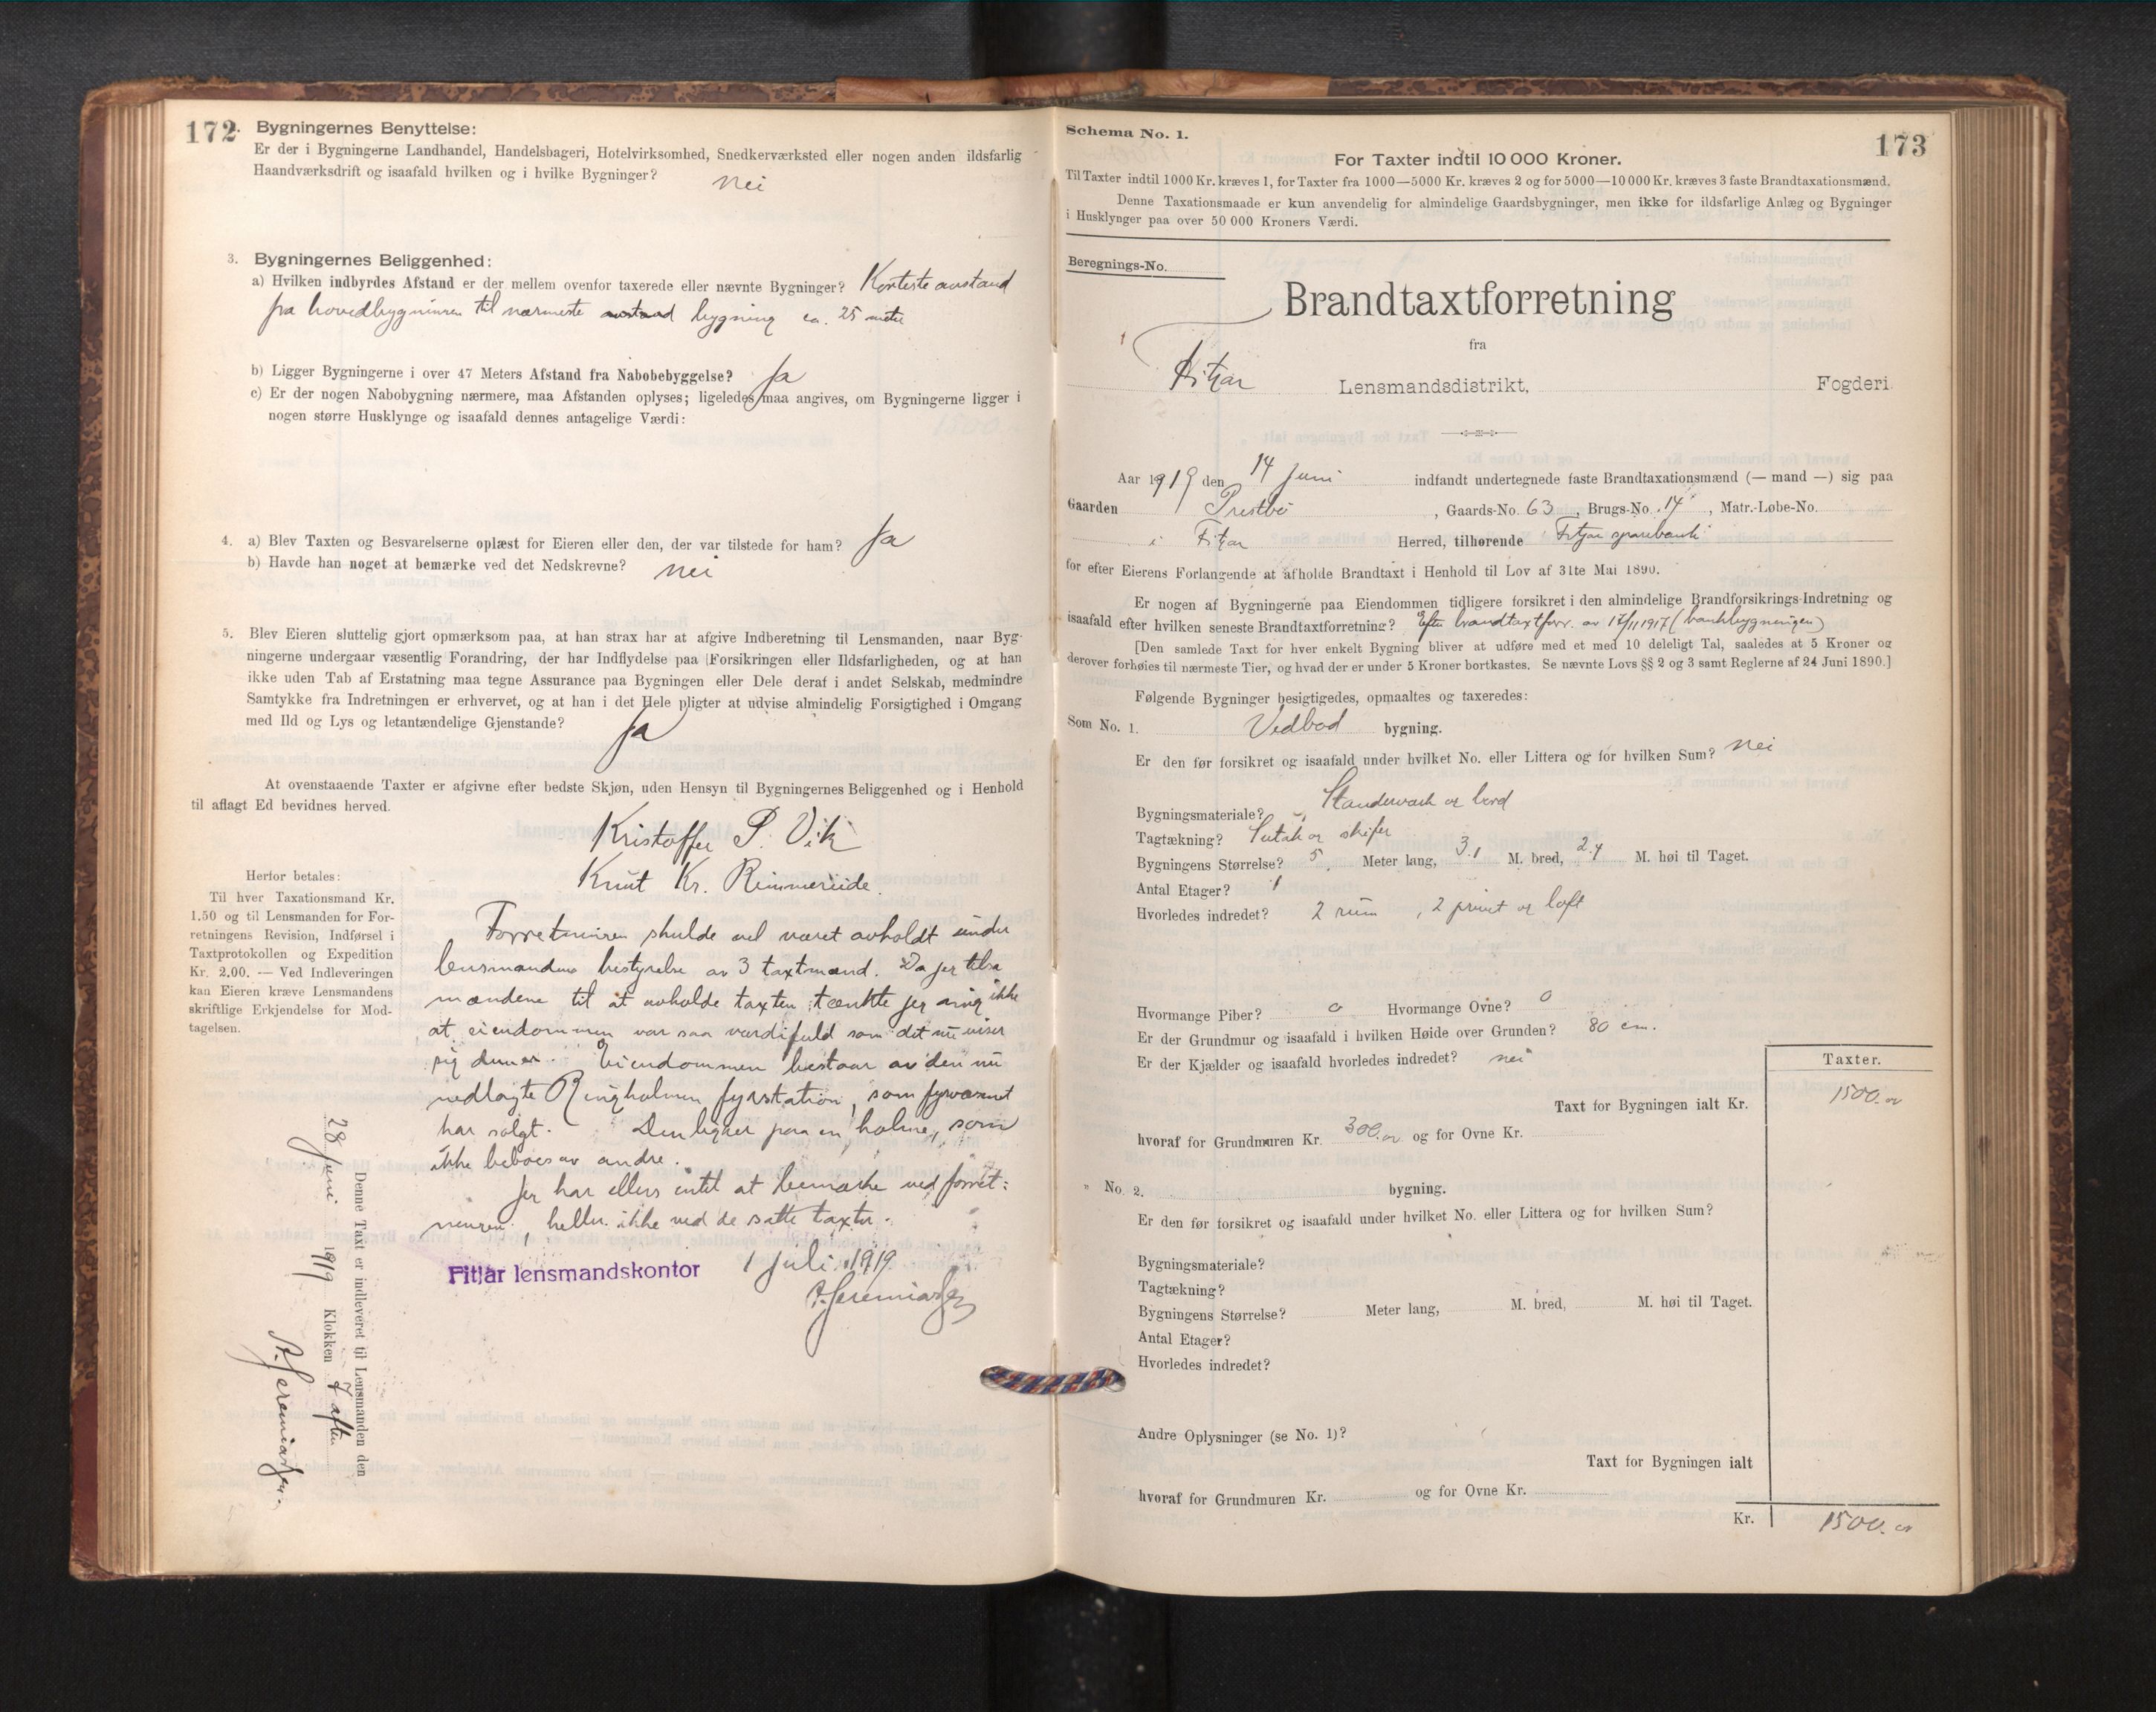 172.
Bygningernes Benyttelse:
Er der i Bygningerne Landhandel, Handelsbageri, Hotelvirksomhed, Snedkerværksted eller nogen anden ildsfarlig
Haandværksdrift og isaafald hvilken og i hvilke Bygninger? Nei
3. Bygningernes Beliggenhed:
a) Hvilken indbyrdes Afstand er der mellem ovenfor taxerede eller nævnte Bygninger? Korteste avstand
fra hovedbygningen til nærmeste avstand bygning ca. 25 meter
b) Ligger Bygningerne i over 47 Meters Afstand fra Nabobebyggelse? Ja
c) Er der nogen Nabobygning nærmere, maa Afstanden oplyses; ligeledes maa angives, om Bygningerne ligger i
nogen større Husklynge og isaafald dennes antagelige Værdi:
4. a) Blev Taxten og Besvarelserne oplæst for Eieren eller den, der var tilstede for ham? Ja
b) Havde han noget at bemærke ved det Nedskrevne? Nei
5. Blev Eieren sluttelig gjort opmærksom paa, at han strax har at afgive Indberetning til Lensmanden, naar Byg-
ningerne undergaar væsentlig Forandring, der har Indflydelse paa Forsikringen eller Ildsfarligheden, og at han
ikke uden Tab af Erstatning maa tegne Assurance paa Bygningen eller Dele deraf i andet Selskab, medmindre
Samtykke fra Indretningen er erhvervet, og at han i det Hele pligter at udvise almindelig Forsigtighed i Omgang
med Ild og Lys og letantændelige Gjenstande? Ja
At ovenstaaende Taxter er afgivne efter bedste Skjøn, uden Hensyn til Bygningernes Beliggenhed og i Henhold
til aflagt Ed bevidnes herved.
Kristoffer P. Vik
Knut Kr. Rimmereide.
Herfor betales:
Til hver Taxationsmand Kr.
1.50 og til Lensmanden for For-
retningens Revision, Indførsel i
Taxtprotokollen og Expedition
Kr. 2.00. — Ved Indleveringen
kan Eieren kræve Lensmandens
skriftlige Erkjendelse for Mod-
tagelsen.
Forretningen skulde vel været avholdt under
lensmandens bestyrelse av 3 taxtmænd. Da jeg tilsa
mændene til at avholde taxten tænkte jeg mig ikke
at eiendommen var saa værdifuld som det nu viser
sig den er. Eiendommen bestaar av den nu
nedlagte Ringholmen fyrstation, som fyrvæsenet
har solgt. Den ligger paa en holme, som
ikke beboes av andre.
Jeg har ellers intet at bemærke ved forret-
ningen, heller ikke ved de satte taxter.
Fitjar lensmandskontor 1 juli 1919.
A. Jeremiassen
Denne Taxt er indleveret til Lensmanden den
28 juni 1919 Klokken 7 aften
A. Jeremiassen.
173
Schema No. 1.
For Taxter indtil 10 000 Kroner.
Til Taxter indtil 1000 Kr. kræves 1, for Taxter fra 1000—5000 Kr. kræves 2 og for 5000—10 000 Kr. kræves 3 faste Brandtaxationsmænd.
Denne Taxationsmaade er kun anvendelig for almindelige Gaardsbygninger, men ikke for ildsfarlige Anlæg og Bygninger
i Husklynger paa over 50 000 Kroners Værdi.
Beregnings-No.
Brandtaxtforretning
fra
Fitjar Lensmandsdistrikt, Fogderi.
Aar 1919 den 14 juni indfandt undertegnede faste Brandtaxationsmænd (— mand —) sig paa
Gaarden Prestbö, Gaards-No. 63, Brugs-No. 14, Matr.-Løbe-No.
i Fitjar Herred, tilhørende Fitjar sparebank
for efter Eierens Forlangende at afholde Brandtaxt i Henhold til Lov af 31te Mai 1890.
Er nogen af Bygningerne paa Eiendommen tidligere forsikret i den almindelige Brandforsikrings-Indretning og
isaafald efter hvilken seneste Brandtaxtforretning? Efter brandtaxtforr. av 17/11 1917 (bankbygningen)
[Den samlede Taxt for hver enkelt Bygning bliver at udføre med et med 10 deleligt Tal, saaledes at 5 Kroner og
derover forhøies til nærmeste Tier, og hvad der er under 5 Kroner bortkastes. Se nævnte Lovs §§ 2 og 3 samt Reglerne af 24 Juni 1890.]
Følgende Bygninger besigtigedes, opmaaltes og taxeredes:
Som No. 1. Vedbod bygning.
Er den før forsikret og isaafald under hvilket No. eller Littera og for hvilken Sum? Nei
Bygningsmateriale? Standerværk og bord
Tagtækning? Sutak og skifer
Bygningens Størrelse? 5 Meter lang, 3.1 M. bred, 2.4 M. høi til Taget.
Antal Etager? 1
Hvorledes indredet? 2 rum, 2 privet og loft
Hvormange Piber? 0 Hvormange Ovne? 0
Er der Grundmur og isaafald i hvilken Høide over Grunden? 80 cm.
Er der Kjælder og isaafald hvorledes indredet? nei
Taxter.
Taxt for Bygningen ialt Kr. 1500.00
hvoraf for Grundmuren Kr. 300.00 og for Ovne Kr.
" No. 2. bygning.
Er den før forsikret og isaafald under hvilket No. eller Littera og for hvilken Sum?
Bygningsmateriale?
Tagtækning?
Bygningens Størrelse? Meter lang, M. bred, M. høi til Taget.
Antal Etager?
Hvorledes indredet?
Andre Oplysninger (se No. 1)?
Taxt for Bygningen ialt
hvoraf for Grundmuren Kr. og for Ovne Kr.
Kr. 1500.00